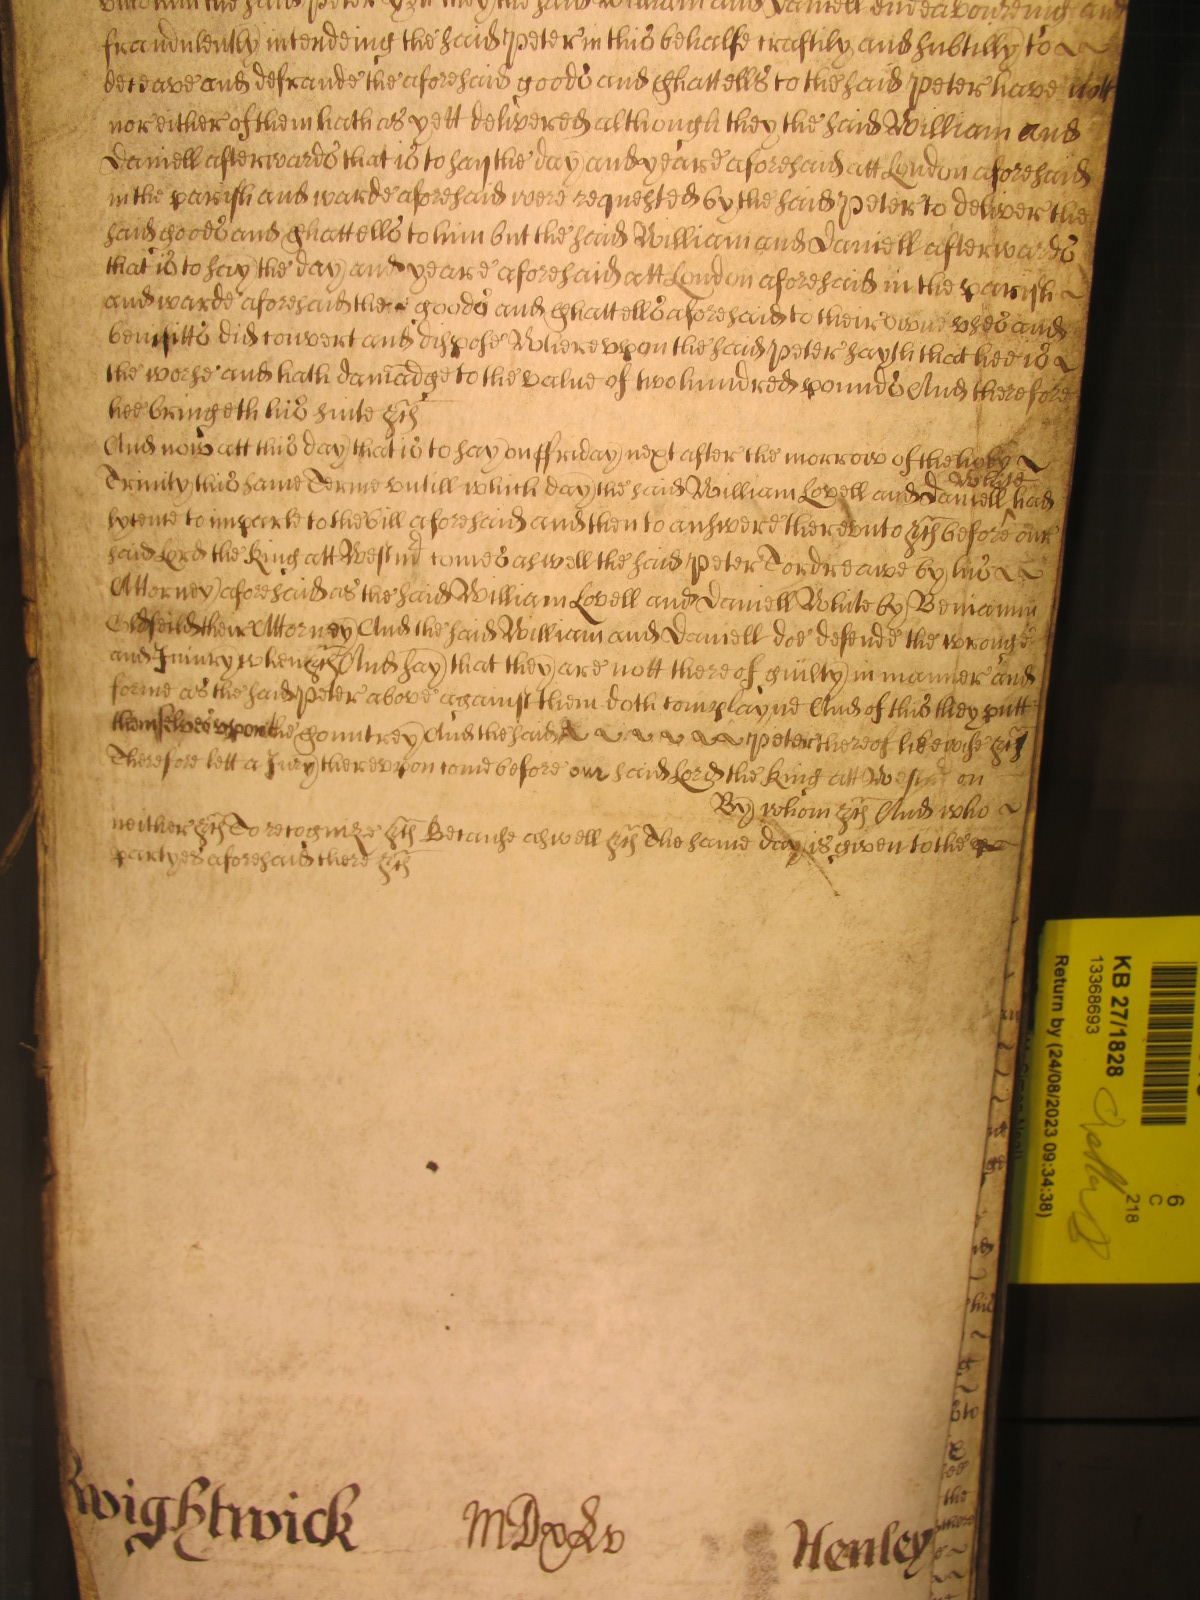 unto him the said Peter Yett they the said William and Daniell endeavoureing and
fraudulently intendeing the said Peter in this behalfe craftily and subtilly to
deceave and defraude the aforesaid goods and Chattells to the said Peter have nott
nor either of them hath as yett delivered although they the said William and
Daniell afterwards that is to say the day and yeare aforesaid att London aforesaid
in the parish and warde aforesaid were requested by the said Peter to deliver the
said goods and Chattells to him but the said William and Daniell afterwards
that is to say the day and yeare aforesaid att London aforesaid in the parish
and warde aforesaid the goods and Chattells aforesaid to their owne uses and
benifitts did convert and dispose Whereupon the said Peter sayth that hee is
the worse and hath damadge to the value of two hundred pounds And therefore
hee bringeth his suite &c
And now att this day that is to say on ffriday next after the morrow of the holy
Trinity this same Terme untill which day the said William Lovell and Daniell White had
lycence to imparle to the Bill aforesaid and then to answere thereunto &c before our
said Lord the King att Westmr comes aswell the said Peter Tordreawe by his
Attorney aforesaid as the said William Lovell and Daniell White by Beniamin
Oldfeild their Attorney And the said William and Daniell doe defende the wronge
and Iniury when &c And say that they are nott thereof guilty in manner and
forme as the said Peter above against them doth complayne And of this they putt
themselves upon the Countrey And the said Peter thereof likewise &c
Therefore lett a Jury thereupon come before our said Lord the King att Westmr on
By whom &c And who
neither &c To recognize &c Because aswell &c The same day is given to the
partyes aforesaid there &c
Wightwick MDxLv Henley
KB 27/1828
13368693
Return by (24/08/2023 09:34:38)
6
C
218